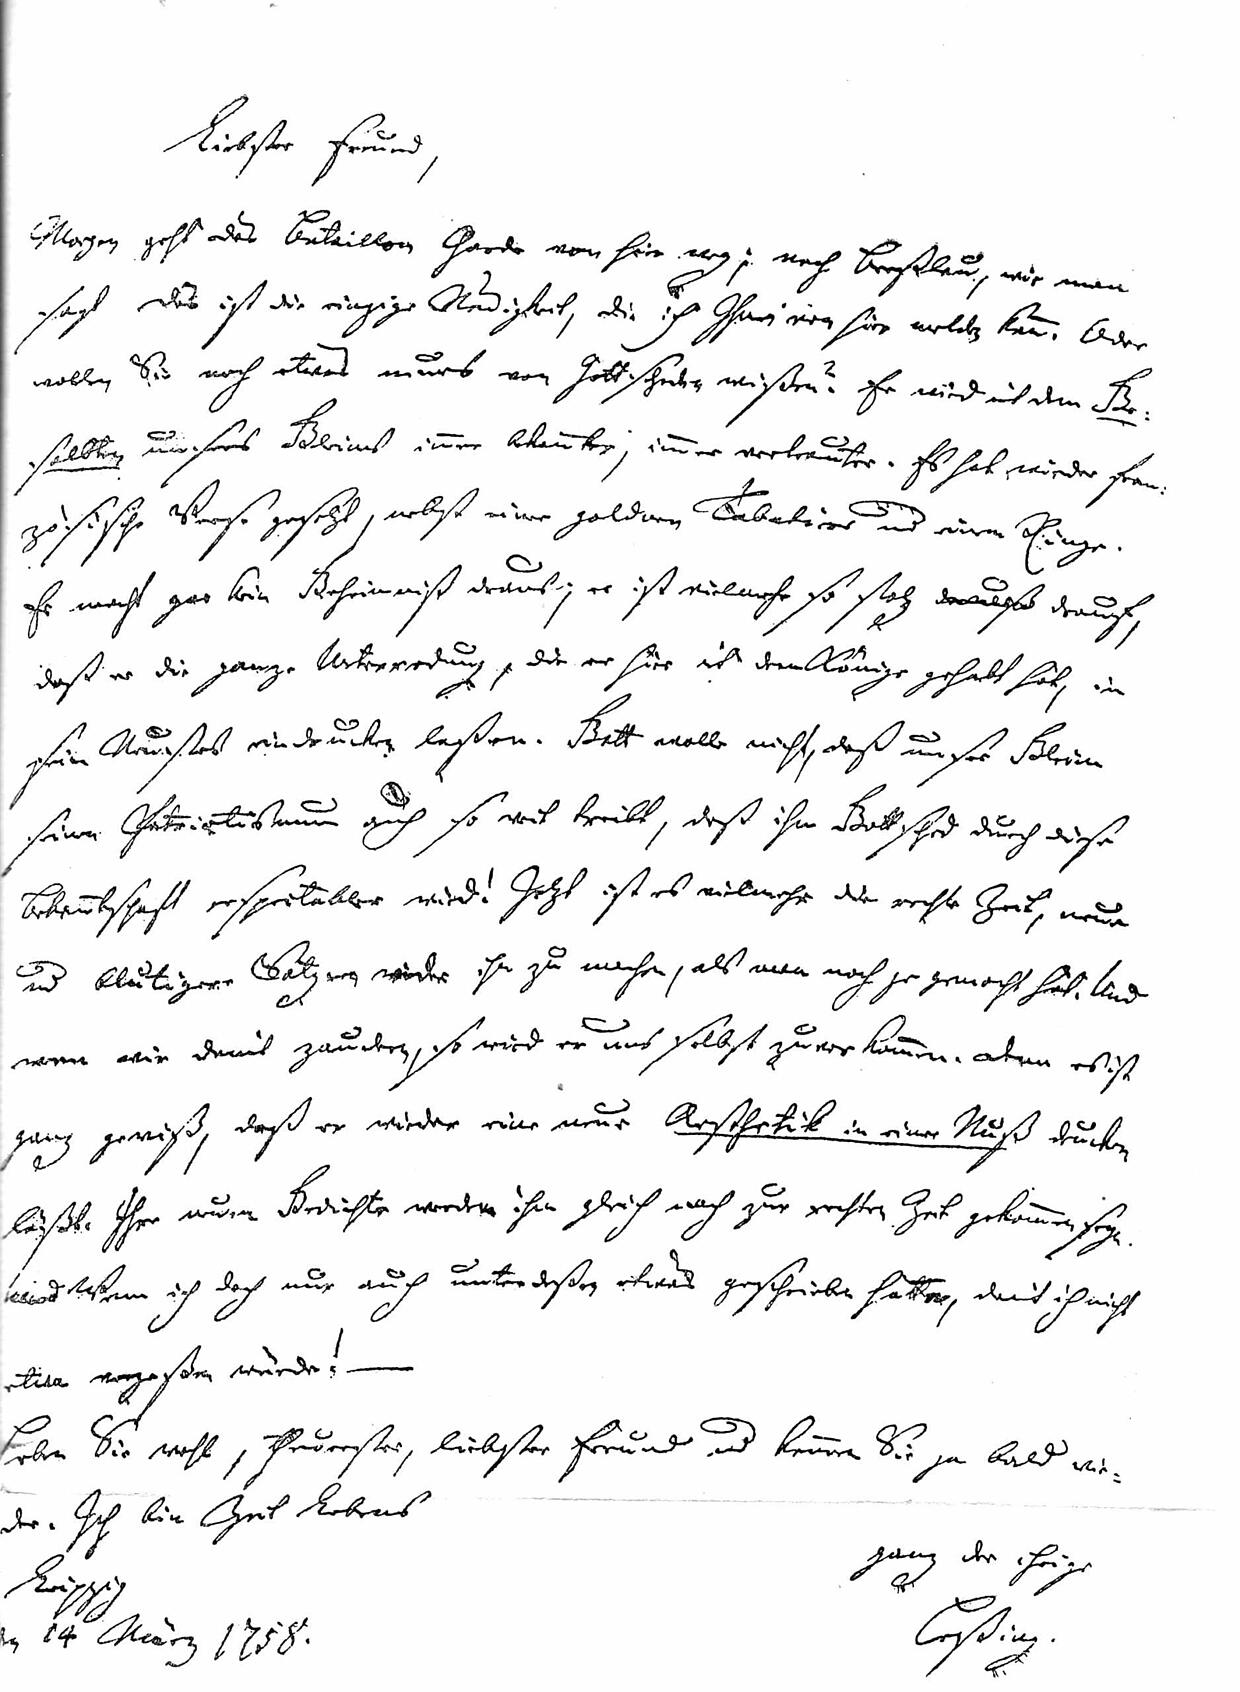 Liebster Freund,
Morgen geht das Bataillon Garde von hier weg; nach Breßlau, wie man
sagt Das ist die einzige Neuigkeit, die ich Ihnen von hier melden kann. Oder
wollen Sie noch etwas neues von Gottscheden wißen? Er wird mit dem Be-
selbten unsers Gleims immer bekannter, immer vertrauter. Es hat wieder fran-
zösische Verse gesetzt, nebst einer goldnen Tabatiere und einem Ringe.
Er macht gar kein Geheimniß draus; er ist vielmehr so stolz drauf,
daß er die ganze Unterredung, die er hier mit dem Könige gehabt hat, in
sein Neuestes eindrucken laßen. Gott wolle nicht, daß unser Gleim
seinen Patriotismum auch so weit treibt, daß ihm Gottsched durch diese
Bekanntschaft respectabler wird! Jetzt ist es vielmehr die rechte Zeit, neue
und blutigere Satyren wider ihn zu machen, als man noch je gemacht hat. Und
wenn wir damit zaudern, so wird er uns selbst zuvor kommen. denn es ist
ganz gewiß, daß er wieder eine neue Aesthetik in einer Nuß drucken
läßt. Ihre neuen Gedichte werden ihm gleich noch zur rechten Zeit gekommen seyn.
Wenn ich doch nur auch unterdeßen etwas geschrieben hätte, damit ich nicht
etwa vergeßen würde! —
Leben Sie wohl, theurester, liebster Freund und kommen Sie ja bald wie-
der. Ich bin Zeit Lebens
ganz der ihrige
Leßing.
Leipzig
den 14 März 1758.